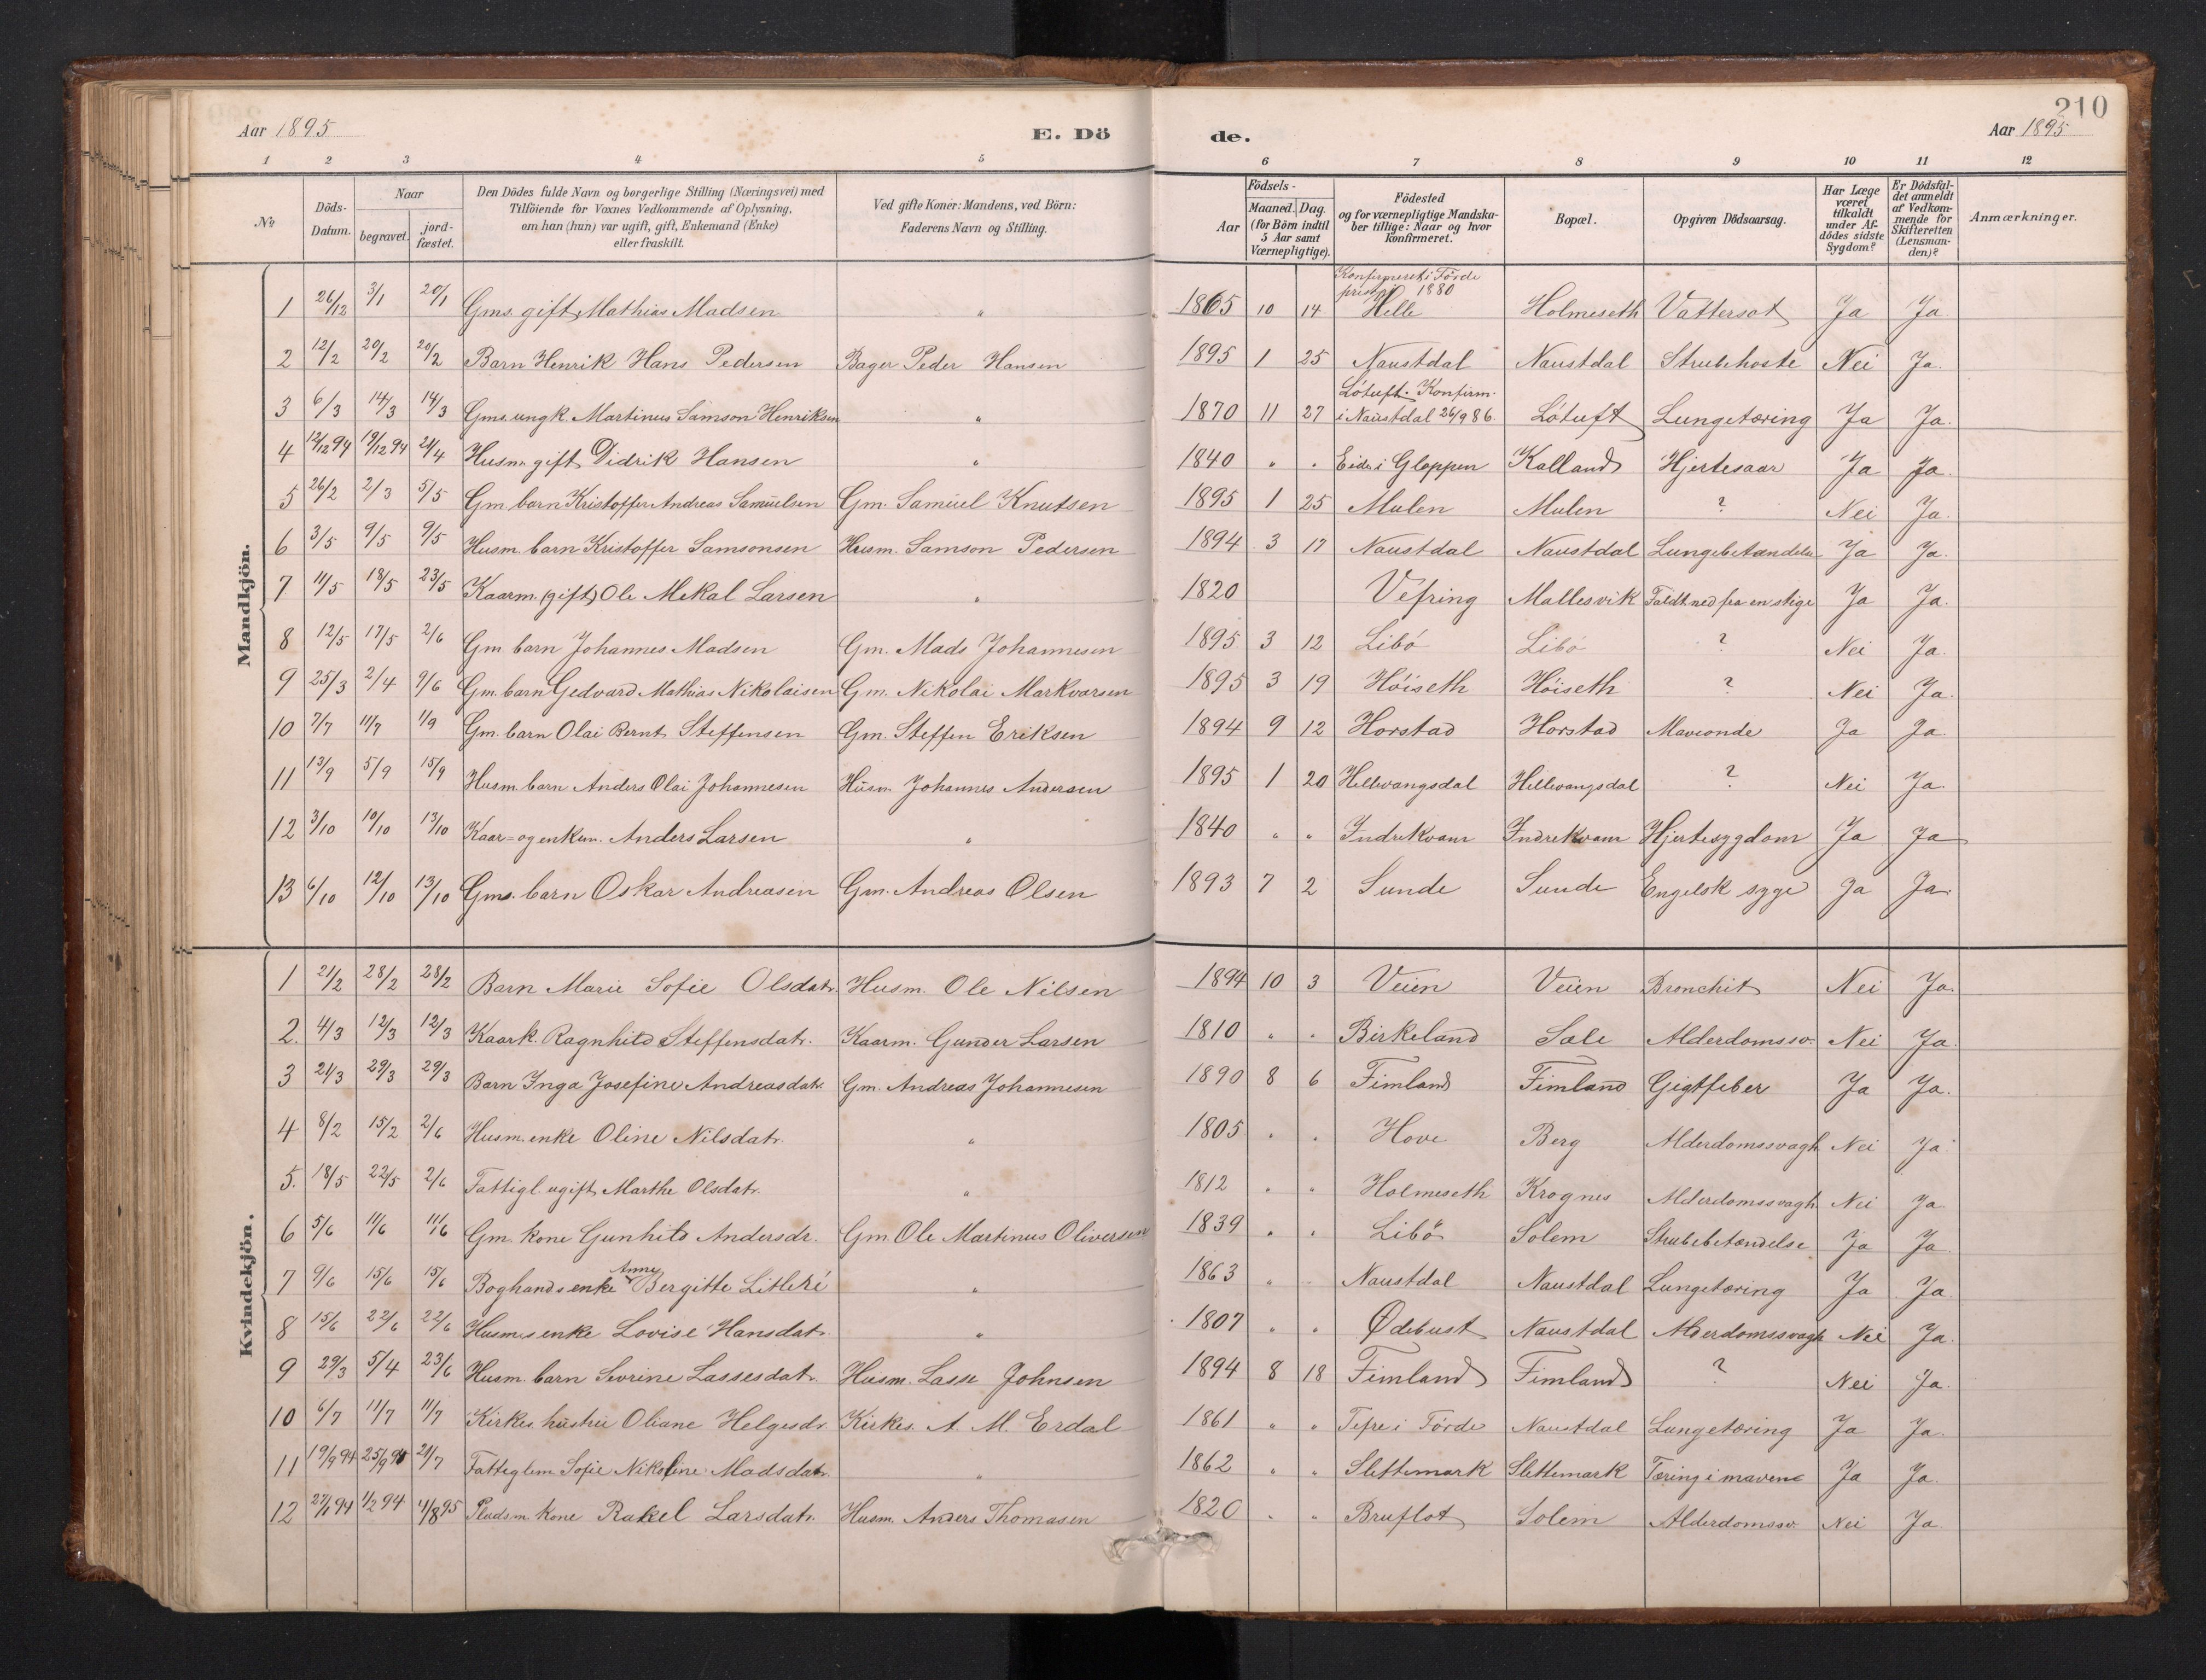 210
Aar 1895 E. Dö de. Aar 1895
1 2 3 4 5 6 7 8 9 10 11 12
No Döds-Datum. Naar begravet. jord-fæstet. Den Dödes fulde Navn og borgerlige Stilling (Næringsvei) med Tilföiende for Voxnes Vedkommende af Oplysning, om han (hun) var ugift, gift, Enkemand (Enke) eller fraskilt. Ved gifte Koner: Mandens, ved Börn: Faderens Navn og Stilling. Födsels- Aar Maaned. Dag. (for Börn indtil 5 Aar samt Værnepligtige). Födested og for værnepligtige Mandskaber tillige: Naar og hvor konfirmeret. Bopæl. Opgiven Dödsaarsag. Har Læge været tilkaldt under Afdödes sidste Sygdom? Er Dödsfaldet anmeldt af Vedkommende for Skifteretten (Lensmanden)? Anmærkninger.
Mandkjön.
1 26/12 3/1 20/1 Gms. gift Mathias Madsen " 1865 10 14 Konfirmeret i Förde 1880 Helle Holmeseth Vattersot Ja Ja
2 12/2 20/2 20/2 Barn Henrik Hans Pedersen Bager Peder Hansen 1895 1 25 Naustdal Naustdal Strubehoste Nei Ja.
3 6/3 14/3 14/3 Gms. ungk. Martinus Samson Henriksen " 1870 11 27 Lötuft. Konfirm. i Naustdal 26/9 86. Lötuft Lungetæring Ja Ja.
4 12/12 94 19/12 94 21/4 Husm. gift Didrik Hansen " 1840 " " Eide i Gloppen Kalland Hjertesaar Ja Ja.
5 26/2 2/3 5/5 Gm. barn Kristoffer Andreas Samuelsen Gm. Samuel Knutsen 1895 1 25 Mulen Mulen ? Nei Ja.
6 3/5 9/5 9/5 Husm. barn Kristoffer Samsonsen Husm. Samson Pedersen 1894 3 17 Naustdal Naustdal Lungebetændelse Ja Ja.
7 11/5 18/5 23/5 Kaarm. (gift) Ole Mekal Larsen " 1820 Vefring Mallesvik Faldt ned fra en stige Ja Ja.
8 12/5 17/5 2/6 Gm. barn Johannes Madsen Gm. Mads Johannesen 1895 3 12 Libö Libö ? Nei Ja.
9 25/3 2/4 9/6 Gm. barn Gedvard Mathias Nikolaisen Gm. Nikolai Markvorsen 1895 3 19 Höiseth Höiseth ? Nei Ja.
10 7/7 11/7 1/9 Gm. barn Olai Bernt Steffensen Gm. Steffen Eriksen 1894 9 12 Horstad Horstad Maveonde Ja Ja.
11 13/9 5/9 15/9 Husm. barn Anders Olai Johannesen Husm. Johannes Andersen 1895 1 20 Hellevangsdal Hellevangsdal ? Nei Ja.
12 3/10 10/10 13/10 Kaar- og enkem. Anders Larsen " 1840 " " Indrekvam Indrekvam Hjertesygdom Ja Ja
13 6/10 12/10 13/10 Gms. barn Oskar Andreasen Gm. Andreas Olsen 1893 7 2 Sunde Sunde Engelsk syge Ja Ja.
Kvindekjön.
1 21/2 28/2 28/2 Barn Marie Sofie Olsdatr. Husm. Ole Nilsen 1894 10 3 Veien Veien Bronchit Nei Ja.
2. 4/3 12/3 12/3 Kaark. Ragnhild Steffensdatr. Kaarm. Gunder Larsen 1810 " " Birkeland Sæle Alderdomssv. Nei Ja.
3 21/3 29/3 29/3 Barn Inga Josefine Andreasdatr. Gm. Andreas Johannesen 1890 8 6 Fimland Fimland Gigtfeber Ja Ja.
4 8/2 15/2 2/6 Husm. enke Oline Nilsdatr. " 1805 " " Hove Berg Alderdomssvagh. Nei Ja.
5. 18/5 22/5 2/6 Fattigl. ugift Marthe Olsdatr. " 1812 " " Holmeseth Krognes Alderdomssvagh. Nei Ja
6 5/6 11/6 11/6 Gm. kone Gunhild Andersdr. Gm. Ole Martinus Oliversen 1839 " " Libö Solem Strubebetændelse Ja Ja
7 9/6 15/6 15/6 Boghands enke Anne Bergitte Litleré " 1863 " " Naustdal Naustdal Lungetæring Ja Ja.
8 15/6 22/6 22/6 Husms enke Lovise Hansdatr. " 1807 " " Ödebust Naustdal Alderdomssvagh Nei Ja.
9 29/3 5/4 23/6 Husm. barn Sevrine Lassesdatr. Husm. Lasse Johnsen 1894 8 18 Fimland Fimland ? Nei Ja.
10 6/7 11/7 11/7 Kirkes. hustru Oliane Helgesdr. Kirkes. A. M. Erdal 1861 " " Tefre i Förde Naustdal Lungetæring Ja Ja.
11 19/9 94 25/9 94 21/7 Fatteglem Sofie Nikoline Madsdatr. " 1862 " " Slettemark Slettemark Tæring i mavene Ja Ja.
12 27/1 94 1/2 94 4/8 95 Pladsm. kone Rakel Larsdatr. Husm. Anders Thomasen 1820 " " Bruflot Solem Alderdomssv. Nei Ja